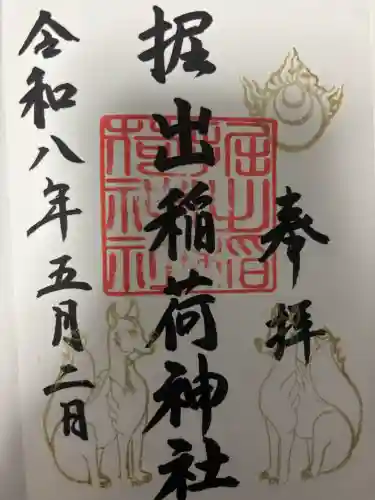 奉拝
掘出稲荷神社
令和八年五月二日